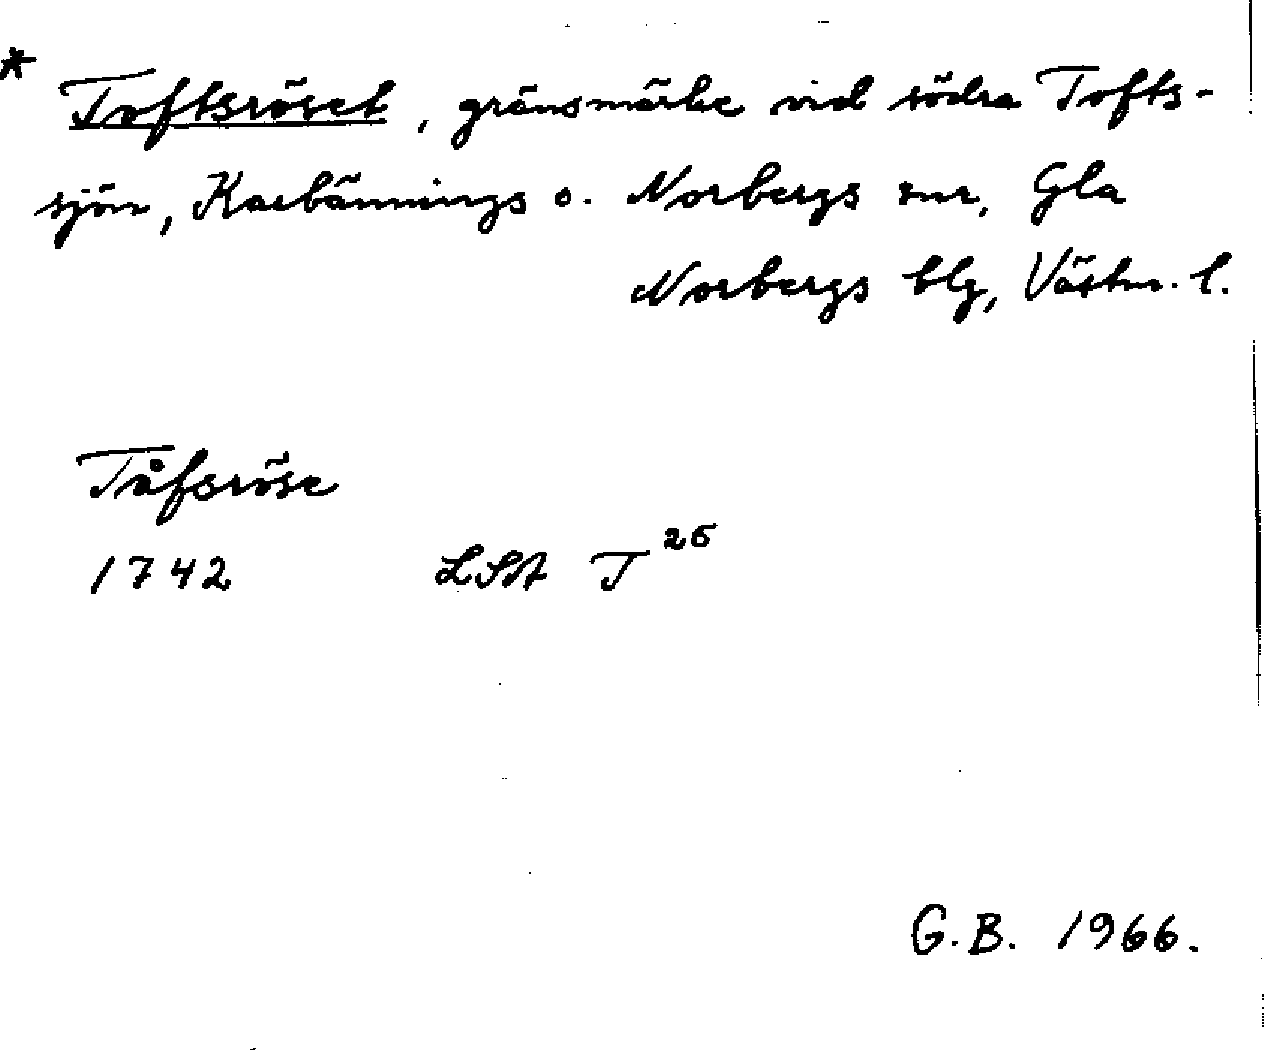 * Toftsröset, gränsmärke vid södra Tofts-
sjön, Karbännings o. Norbergs snr, Gla
Norbergs blg, Västm. l.
Tåfsröse
1742 LSA T 26
G.B. 1966.